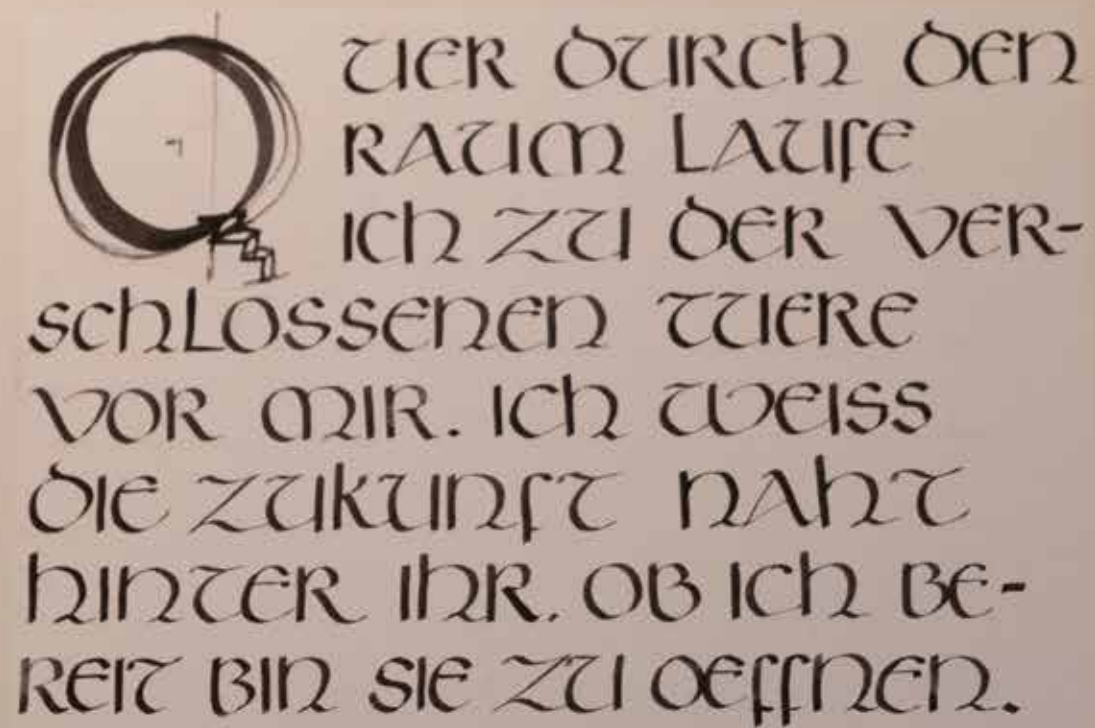 QUER DURCH DEN
RAUM LAUFE
ICH ZU DER VER-
SCHLOSSENEN TUERE
VOR MIR. ICH WEISS
DIE ZUKUNFT NAHT
HINTER IHR. OB ICH BE-
REIT BIN SIE ZU OEFFNEN.